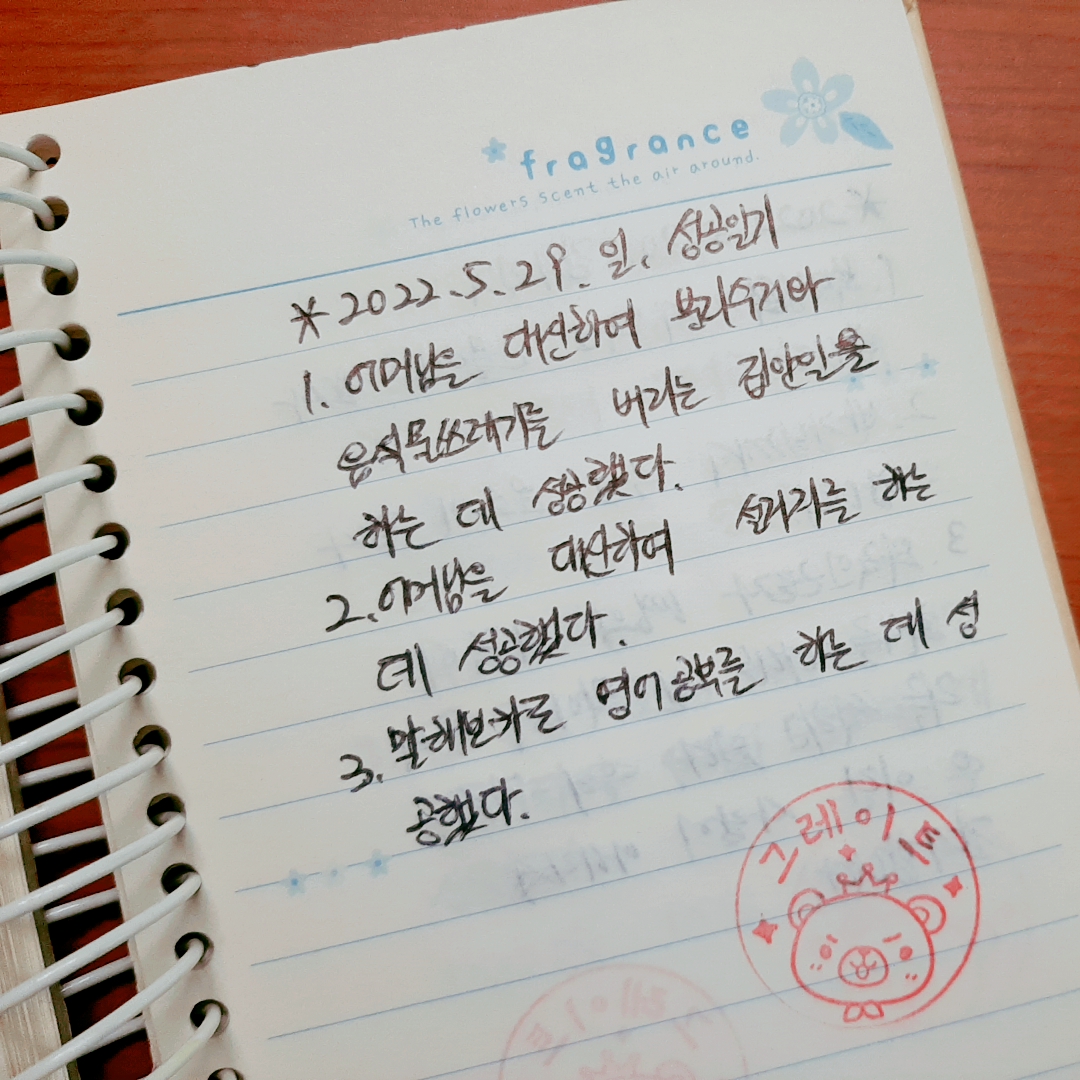 fragrance
The flowers scent the air around.
*2022.5.29. 일. 성공일기
1. 어머님을 대신하여 분리수거와
음식물쓰레기를 버리는 집안일을
하는 데 성공했다.
2. 어머님을 대신하여 설거지를 하는
데 성공했다.
3. 말해보카로 영어공부를 하는 데 성
공했다.
그레이트